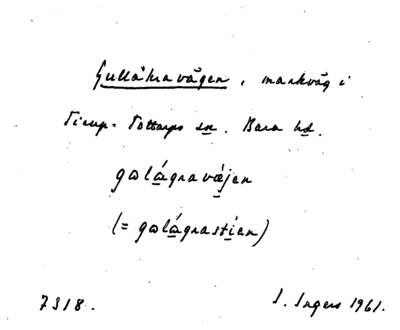 Gullåkravägen, markväg i
Tirup-Tottarps sn. Bara hd.
gωlágravæjen
(= gωlágrastíen)
7318. I. Ingers 1961.